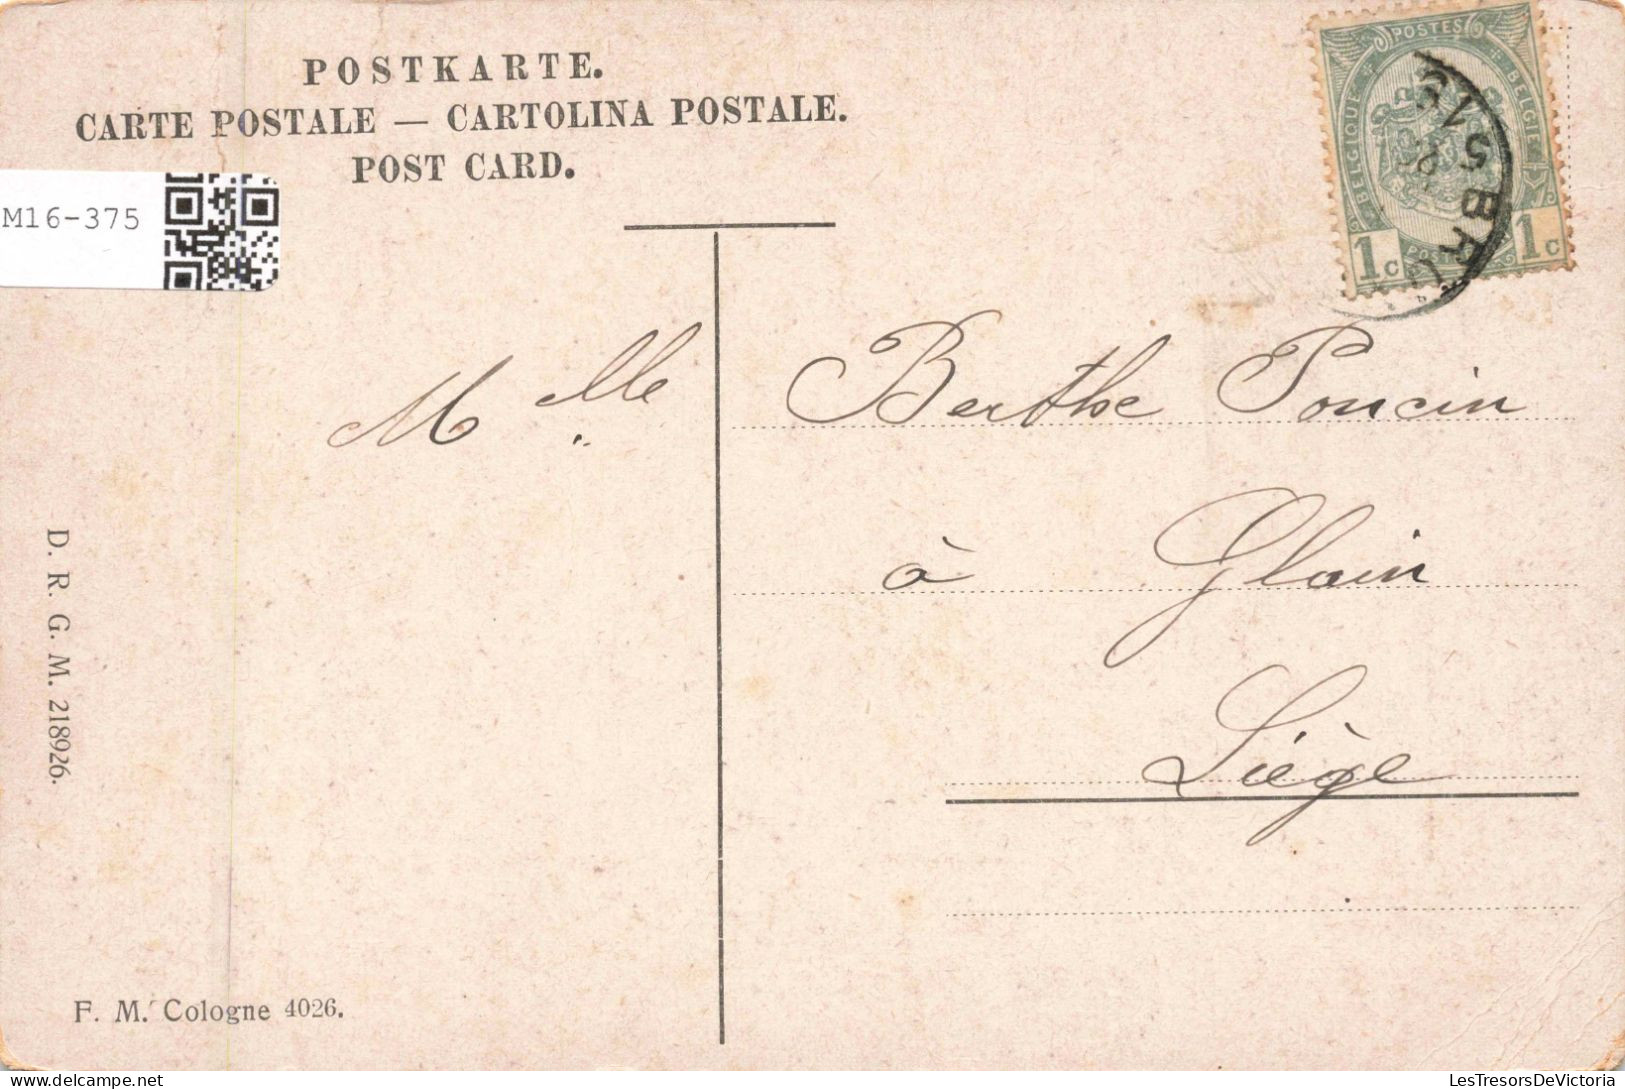 POSTKARTE.
CARTE POSTALE — CARTOLINA POSTALE.
POST CARD.
M16-375
POSTES
BELGIQUE
BELGIË
1c
1c
Mlle
Berthe Poncin
à Glain
Liège
D. R. G. M. 218926.
F. M. Cologne 4026.
LesTresorsDeVictoria